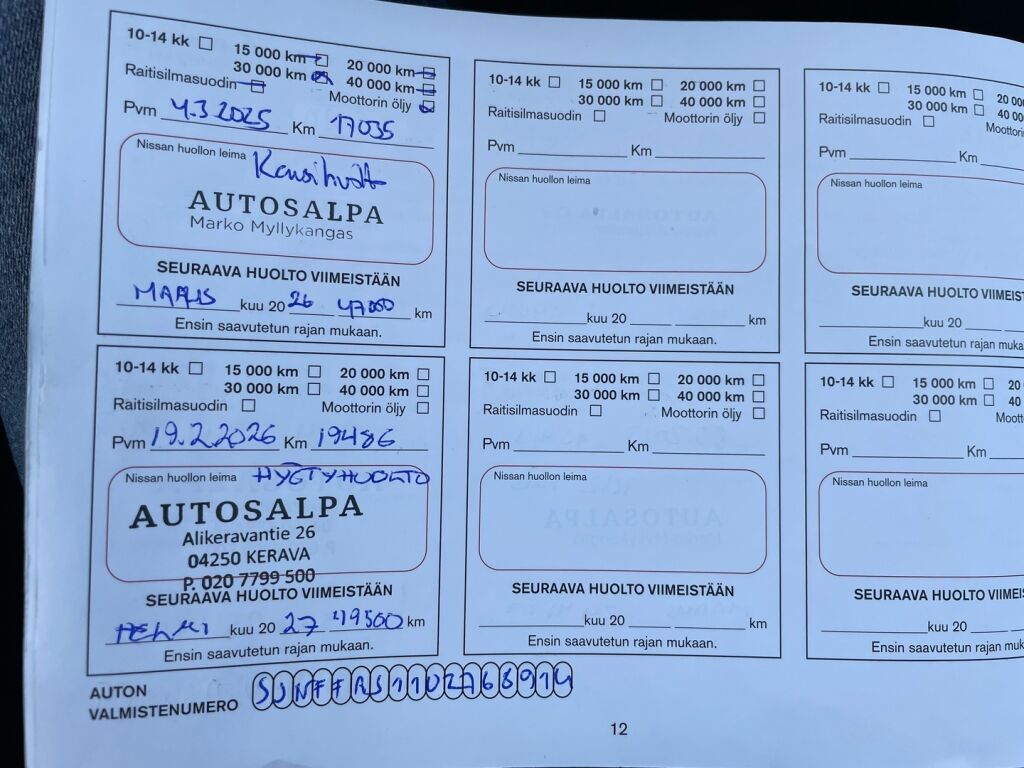 10-14 kk 15 000 km 20 000 km
30 000 km 40 000 km
Raitisilmasuodin Moottorin öljy
Pvm 4.3.2025 Km 17035
Nissan huollon leima
AUTOSALPA
Marko Myllykangas
SEURAAVA HUOLTO VIIMEISTÄÄN
kuu 20 26 47000 km
Ensin saavutetun rajan mukaan.
10-14 kk 15 000 km 20 000 km
30 000 km 40 000 km
Raitisilmasuodin Moottorin öljy
Pvm Km
Nissan huollon leima
SEURAAVA HUOLTO VIIMEISTÄÄN
kuu 20 km
Ensin saavutetun rajan mukaan.
10-14 kk 15 000 km 20 00
30 000 km 40 00
Raitisilmasuodin Moottorin
Pvm Km
Nissan huollon leima
SEURAAVA HUOLTO VIIMEIST
kuu 20
Ensin saavutetun rajan muka
10-14 kk 15 000 km 20 000 km
30 000 km 40 000 km
Raitisilmasuodin Moottorin öljy
Pvm 19.2.2026 Km 19486
Nissan huollon leima HYÖTYHUOLTO
AUTOSALPA
Alikeravantie 26
04250 KERAVA
P. 020 7799 500
SEURAAVA HUOLTO VIIMEISTÄÄN
HELMI kuu 20 27 49500 km
Ensin saavutetun rajan mukaan.
10-14 kk 15 000 km 20 000 km
30 000 km 40 000 km
Raitisilmasuodin Moottorin öljy
Pvm Km
Nissan huollon leima
SEURAAVA HUOLTO VIIMEISTÄÄN
kuu 20 km
Ensin saavutetun rajan mukaan.
10-14 kk 15 000 km 20
30 000 km 40
Raitisilmasuodin Moott
Pvm Km
Nissan huollon leima
SEURAAVA HUOLTO VIIMEIS
kuu 20
Ensin saavutetun rajan muk
AUTON
VALMISTENUMERO
12